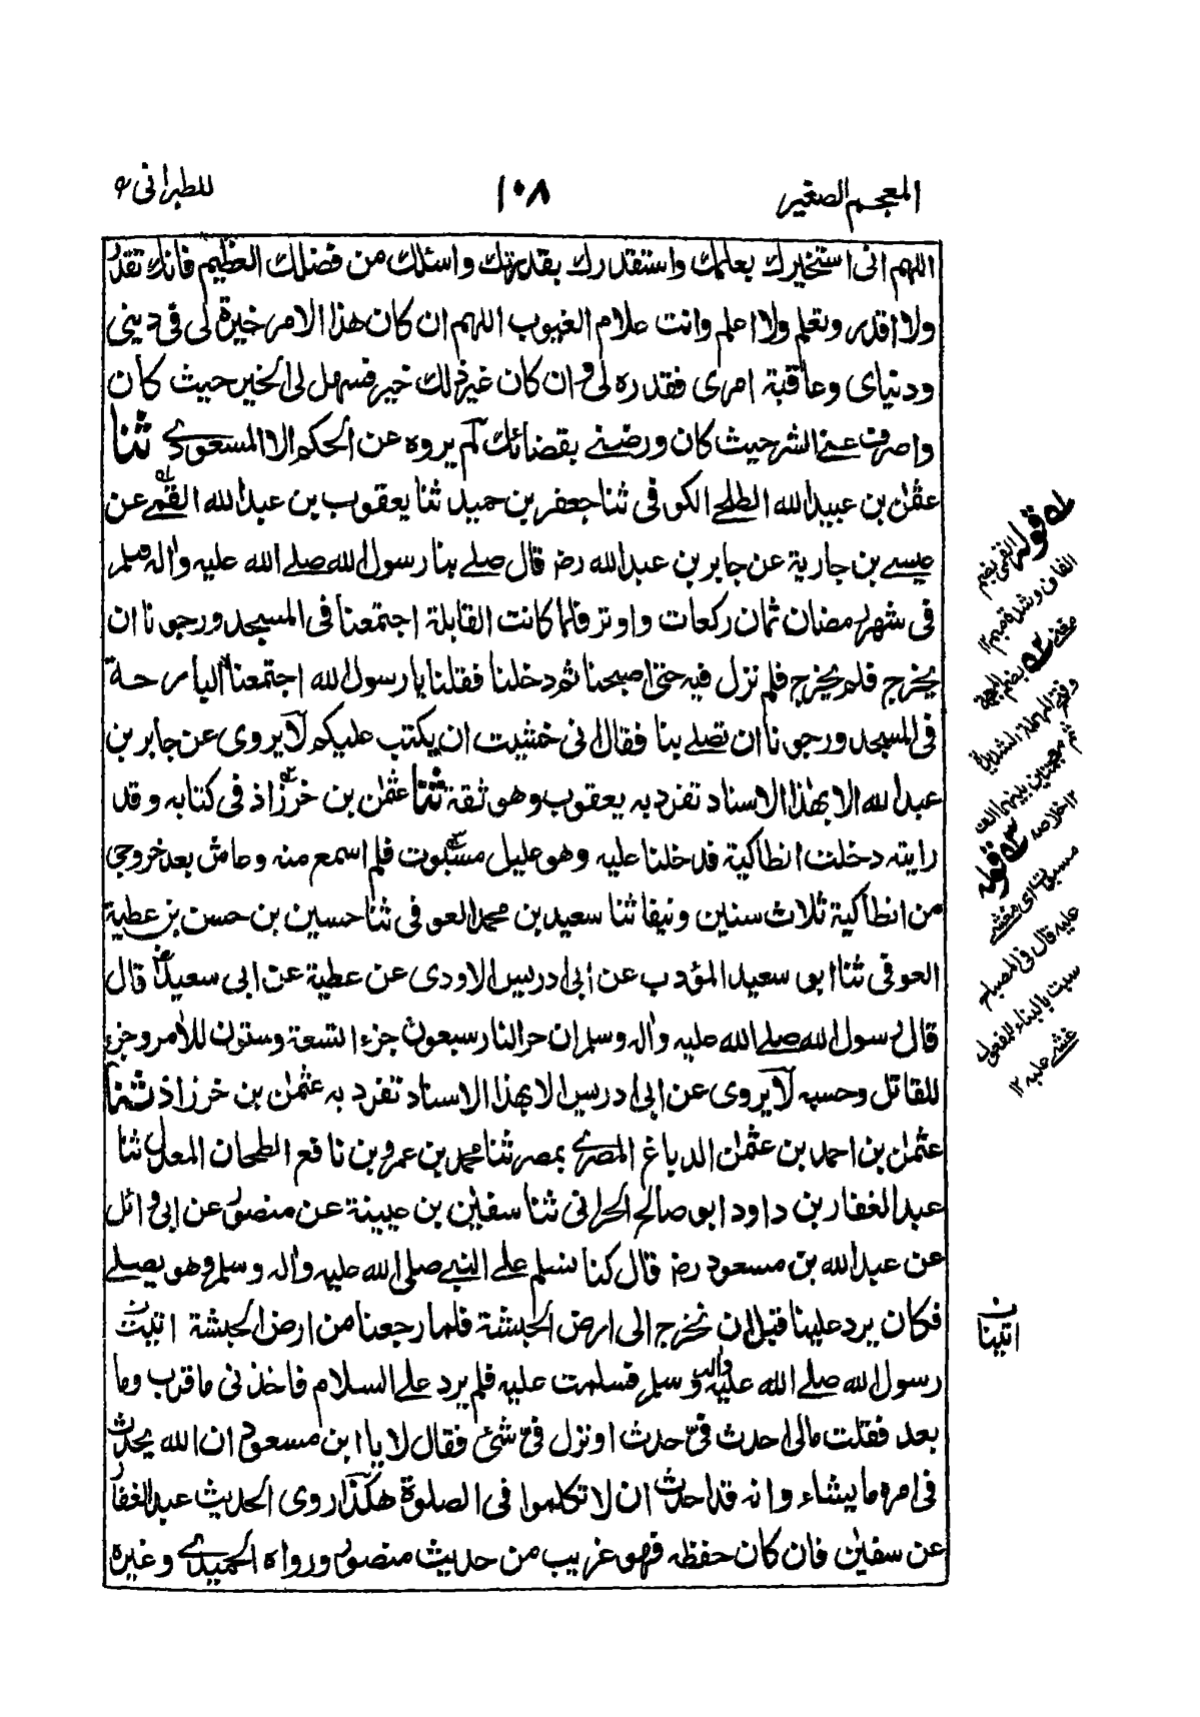 المعجم الصغير
١٠٨
للطبرانی
اللهم انی استخیرك بعلمك واستقدرك بقدرتك واسئلك من فضلك العظیم فانك تقدر
ولا اقدر وتعلم ولا اعلم وانت علام الغیوب اللهم ان كان هذا الامر خیرة لی فی دینی
ودنیای وعاقبة امری فقدره لی وان كان غیر ذلك خیر فسهل لی الخیر حیث كان
واصرف عنی الشر حیث كان ورضنی بقضائك لم یروه عن الحكم الا المسعودی ثنا
عثمٰن بن عبید الله الطلحی الكوفی ثنا جعفر بن حمید ثنا یعقوب بن عبد الله القمی عن
عیسی بن جاریة عن جابر بن عبد الله رضـ قال صلی بنا رسول الله صلی الله علیه واٰله وسلم
فی شهر رمضان ثمان ركعات واوتر فلما كانت القابلة اجتمعنا فی المسجد ورجونا ان
یخرج فلم یخرج فلم نزل فیه حتی اصبحنا ثم دخلنا فقلنا یا رسول الله اجتمعنا البارحة
فی المسجد ورجونا ان تصلی بنا فقال انی خشیت ان یكتب علیكم لا یروی عن جابر بن
عبد الله الا بهٰذا الاسناد تفرد به یعقوب وهو ثقة ثنا عثمٰن بن خرزاذ فی كتابه وقد
رایته دخلت انطاكیة قدخلنا علیه وهو علیل مسبوت فلم اسمع منه وعاش بعد خروجی
من انطاكیة ثلاث سنین ونیفا ثنا سعید بن محمد العوفی ثنا حسین بن حسن بن عطیة
العوفی ثنا ابو سعید المؤدب عن ابی ادریس الاودی عن عطیة عن ابی سعید رضـ قال
قال رسول الله صلی الله علیه واٰله وسلم ان حر النار سبعون جزء التسعة وستون للاٰمر وجزء
للقاتل وحسبه لا یروی عن ابی ادریس الا بهذا الاسناد تفرد به عثمٰن بن خرزاذ ثنا
عثمٰن بن احمد بن عثمٰن الدباغ المصری بمصر ثنا محمد بن عمرو بن نافع الطحان المعدل ثنا
عبد الغفار بن داود ابو صالح الحرانی ثنا سفیٰن بن عیینة عن منصور عن ابی وائل
عن عبد الله بن مسعود رضـ قال كنا نسلم علی النبی صلی الله علیه واٰله وسلم وهو یصلی
فكان یرد علینا قبل ان نخرج الی ارض الحبشة فلما رجعنا من ارض الحبشة اتیت
رسول الله صلی الله علیه واٰله وسلم فسلمت علیه فلم یرد علی السلام فاخذنی ما قرب وما
بعد فقلت مالی احدث فیّ حدث او نزل فیّ شئ فقال لا یا ابن مسعود ان الله یحدث
فی امره ما یشاء وانه قد احدث ان لا تكلموا فی الصلوة هكذا روی الحدیث عبد الغفار
عن سفیٰن فان كان حفظه فهو غریب من حدیث منصور ورواه الحمیدی وغیره
له قوله القمی بضم
القاف وشدة میم ١٢
مغنی ٢ه بضم المعجمة
وفتح المهملة المشددة
ثم معجمتین بینهما الف
١٢ خلاصه ٣ه قوله
مسبوت ای مغشی
علیه قال فی المصباح
سبت بالبناء للمفعول
غشی علیه ١٢
ن
اتینا